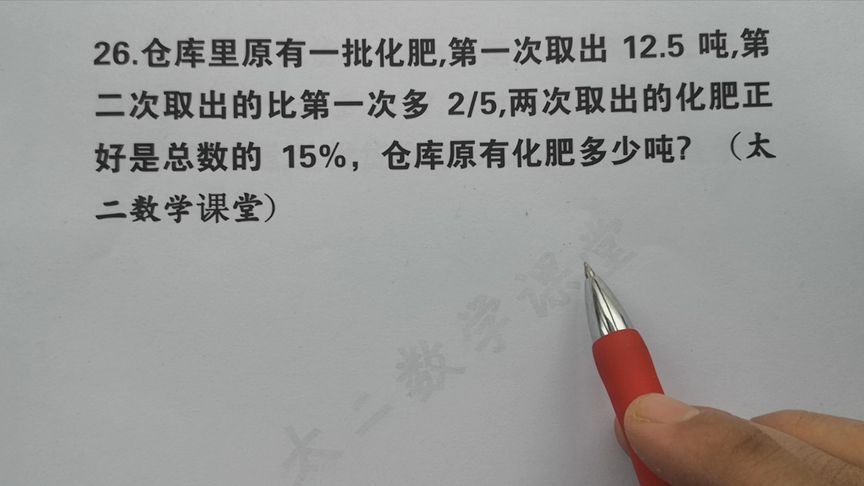 26.仓库里原有一批化肥,第一次取出 12.5 吨,第
二次取出的比第一次多 2/5,两次取出的化肥正
好是总数的 15%，仓库原有化肥多少吨？（太
二数学课堂）
太二数学课堂